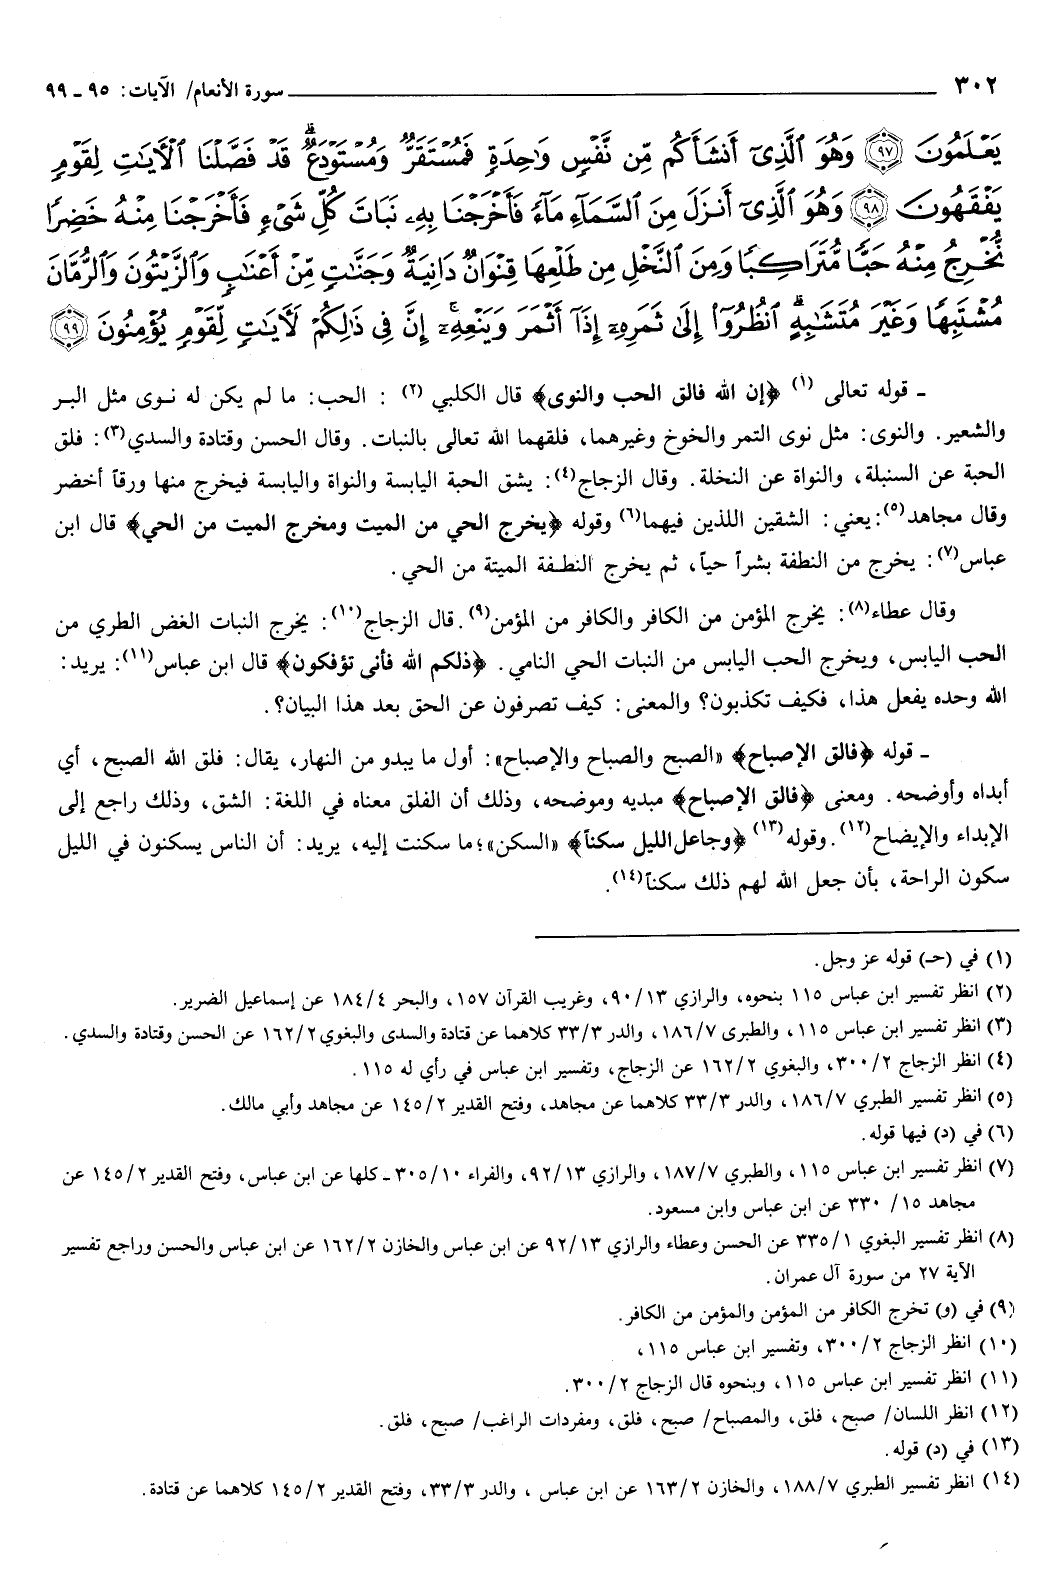 ٣٠٢ سورة الأنعام/ الآيات: ٩٥ ـ ٩٩
يَعْلَمُونَ ﴿٩٧﴾ وَهُوَ ٱلَّذِىٓ أَنشَأَكُم مِّن نَّفْسٍ وَٰحِدَةٍ فَمُسْتَقَرٌّ وَمُسْتَوْدَعٌ ۗ قَدْ فَصَّلْنَا ٱلْأَيَٰتِ لِقَوْمٍ
يَفْقَهُونَ ﴿٩٨﴾ وَهُوَ ٱلَّذِىٓ أَنزَلَ مِنَ ٱلسَّمَآءِ مَآءً فَأَخْرَجْنَا بِهِۦ نَبَاتَ كُلِّ شَىْءٍ فَأَخْرَجْنَا مِنْهُ خَضِرًا
نُّخْرِجُ مِنْهُ حَبًّا مُّتَرَاكِبًا وَمِنَ ٱلنَّخْلِ مِن طَلْعِهَا قِنْوَانٌ دَانِيَةٌ وَجَنَّٰتٍ مِّنْ أَعْنَابٍ وَٱلزَّيْتُونَ وَٱلرُّمَّانَ
مُشْتَبِهًا وَغَيْرَ مُتَشَٰبِهٍ ۗ ٱنظُرُوٓا۟ إِلَىٰ ثَمَرِهِۦٓ إِذَآ أَثْمَرَ وَيَنْعِهِۦٓ ۚ إِنَّ فِى ذَٰلِكُمْ لَأَيَٰتٍ لِّقَوْمٍ يُؤْمِنُونَ ﴿٩٩﴾
ـ قوله تعالى (١) ﴿إن الله فالق الحب والنوى﴾ قال الكلبي (٢) : الحب: ما لم يكن له نوى مثل البر
والشعير. والنوى: مثل نوى التمر والخوخ وغيرهما، فلقهما الله تعالى بالنبات. وقال الحسن وقتادة والسدي(٣): فلق
الحبة عن السنبلة، والنواة عن النخلة. وقال الزجاج(٤): يشق الحبة اليابسة والنواة واليابسة فيخرج منها ورقاً أخضر
وقال مجاهد(٥): يعني: الشقين اللذين فيهما(٦) وقوله ﴿يخرج الحي من الميت ومخرج الميت من الحي﴾ قال ابن
عباس(٧): يخرج من النطفة بشراً حياً، ثم يخرج النطفة الميتة من الحي.
وقال عطاء(٨): يخرج المؤمن من الكافر والكافر من المؤمن(٩). قال الزجاج(١٠): يخرج النبات الغض الطري من
الحب اليابس، ويخرج الحب اليابس من النبات الحي النامي. ﴿ذلكم الله فأنى تؤفكون﴾ قال ابن عباس(١١): يريد:
الله وحده يفعل هذا، فكيف تكذبون؟ والمعنى: كيف تصرفون عن الحق بعد هذا البيان؟.
ـ قوله ﴿فالق الإصباح﴾ «الصبح والصباح والإصباح»: أول ما يبدو من النهار، يقال: فلق الله الصبح، أي
أبداه وأوضحه. ومعنى ﴿فالق الإصباح﴾ مبديه وموضحه، وذلك أن الفلق معناه في اللغة: الشق، وذلك راجع إلى
الإبداء والإيضاح(١٢). وقوله(١٣) ﴿وجاعل الليل سكناً﴾ «السكن»؛ ما سكنت إليه، يريد: أن الناس يسكنون في الليل
سكون الراحة، بأن جعل الله لهم ذلك سكناً(١٤).
(١) في (حـ) قوله عز وجل.
(٢) انظر تفسير ابن عباس ١١٥ بنحوه، والرازي ٩٠/١٣، وغريب القرآن ١٥٧، والبحر ١٨٤/٤ عن إسماعيل الضرير.
(٣) انظر تفسير ابن عباس ١١٥، والطبرى ١٨٦/٧، والدر ٣٣/٣ كلاهما عن قتادة والسدى والبغوي ١٦٢/٢ عن الحسن وقتادة والسدي.
(٤) انظر الزجاج ٣٠٠/٢، والبغوي ١٦٢/٢ عن الزجاج، وتفسير ابن عباس في رأي له ١١٥.
(٥) انظر تفسير الطبري ١٨٦/٧، والدر ٣٣/٣ كلاهما عن مجاهد، وفتح القدير ١٤٥/٢ عن مجاهد وأبي مالك.
(٦) في (د) فيها قوله.
(٧) انظر تفسير ابن عباس ١١٥، والطبري ١٨٧/٧، والرازي ٩٢/١٣، والفراء ٣٠٥/١٠ ـ كلها عن ابن عباس، وفتح القدير ١٤٥/٢ عن
مجاهد ١٥/ ٣٣٠ عن ابن عباس وابن مسعود.
(٨) انظر تفسير البغوي ٣٣٥/١ عن الحسن وعطاء والرازي ٩٢/١٣ عن ابن عباس والخازن ١٦٢/٢ عن ابن عباس والحسن وراجع تفسير
الآية ٢٧ من سورة آل عمران.
(٩) في (و) تخرج الكافر من المؤمن والمؤمن من الكافر.
(١٠) انظر الزجاج ٣٠٠/٢، وتفسير ابن عباس ١١٥،
(١١) انظر تفسير ابن عباس ١١٥، وبنحوه قال الزجاج ٣٠٠/٢.
(١٢) انظر اللسان/ صبح، فلق، والمصباح/ صبح، فلق، ومفردات الراغب/ صبح، فلق.
(١٣) في (د) قوله.
(١٤) انظر تفسير الطبري ١٨٨/٧، والخازن ١٦٣/٢ عن ابن عباس ، والدر ٣٣/٣، وفتح القدير ١٤٥/٢ كلاهما عن قتادة.